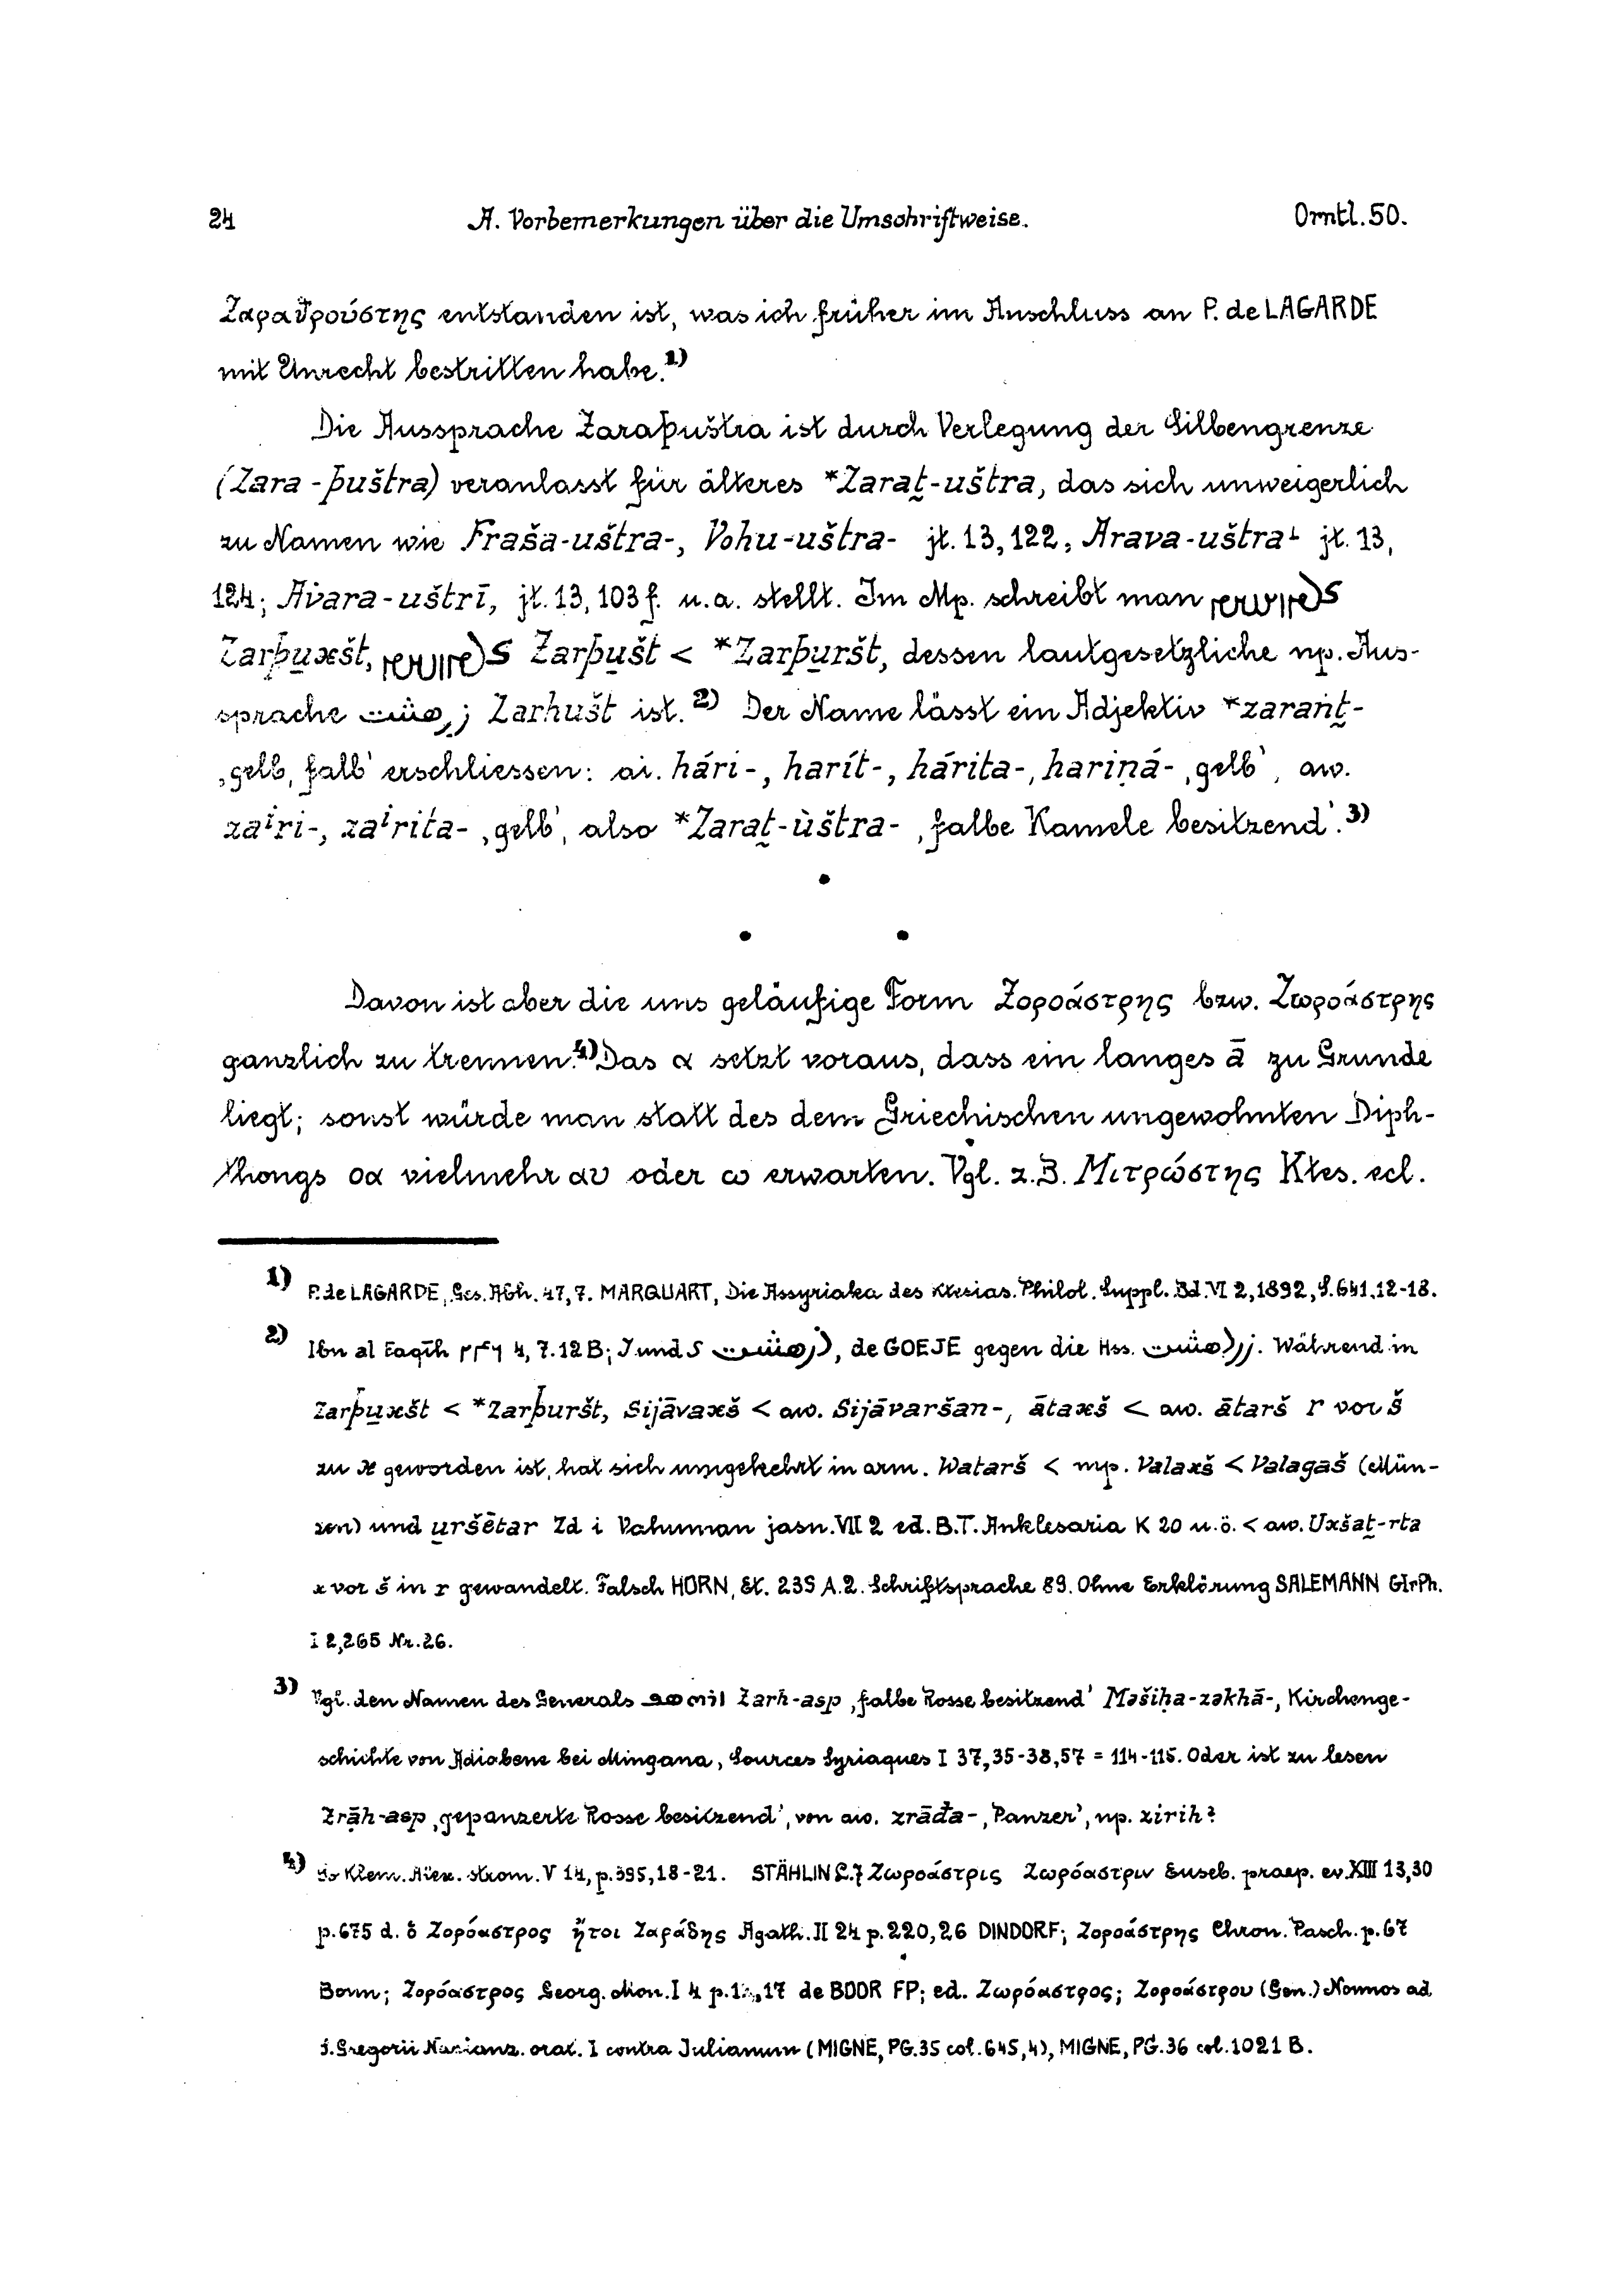 24 A. Vorbemerkungen über die Umschriftweise. Orntl. 50.
Ζαραϑρούστης entstanden ist, was ich früher im Anschluss an P. de LAGARDE
mit Unrecht bestritten habe.1)
Die Aussprache Zaraþuštra ist durch Verlegung der Silbengrenze
(Zara-þuštra) veranlasst für älteres *Zarat̰-uštra, das sich unweigerlich
zu Namen wie Fraša-uštra-, Vohu-uštra- jt. 13, 122, Arava-uštra- jt. 13,
124; Avara-uštrī, jt. 13, 103 f. u.a. stellt. Im Mp. schreibt man
Zarþu̱xšt, Zarþu̱št < *Zarþu̱ršt, dessen lautgesetzliche np. Aus-
sprache زرهشت Zarhušt ist.2) Der Name lässt ein Adjektiv *zarant̰-
‚gelb, falb' erschliessen: ai. hári-, harít-, hárita-, hariṇá- ‚gelb', aw.
zaⁱri-, zaⁱrita- ‚gelb', also *Zarat̰-ùštra- ‚falbe Kamele besitzend'.3)
Davon ist aber die uns geläufige Form Ζοροάστρης bzw. Ζωροάστρης
gänzlich zu trennen.4) Das α setzt voraus, dass ein langes ā zu Grunde
liegt; sonst würde man statt des dem Griechischen ungewohnten Diph-
thongs οα vielmehr αυ oder ω erwarten. Vgl. z.B. Μιτρώστης Ktes. ecl.
1) P. de LAGARDE, Ges. Abh. 47, 7. MARQUART, Die Assyriaka des Ktesias. Philol. Suppl. Bd. VI 2, 1892, S. 641, 12-18.
2) Ibn al Faqīh ٢٤٦ 4, 7. 12 B; I und S, de GOEJE gegen die Hss. Während in
Zarþu̱xšt < *Zarþuršt, Sijāvaxš < aw. Sijāvaršan-, ātaxš < aw. ātarš r vor š
zu x geworden ist, hat sich umgekehrt in arm. Watarš < mp. Valaxš < Valagaš (Mün-
zen) und u̱ršētar Zd i Vahuman jasn. VII 2 ed. B.T. Anklesaria K 20 u.ö. < aw. Uxšat̰-rta
x vor š in r gewandelt. Falsch HORN, Et. 239 A. 2. Schriftsprache 89. Ohne Erklärung SALEMANN GIrPh.
I 2, 265 Nr. 26.
3) Vgl. den Namen des Generals Zarh-asp ‚falbe Rosse besitzend' Məšiḥa-zəkhā-, Kirchenge-
schichte von Adiabene bei Mingana, Sources Syriaques I 37, 35-38, 57 = 114-115. Oder ist zu lesen
Zrāh-asp ‚gepanzerte Rosse besitzend', von aw. zrāđa- ‚Panzer', np. zirih?
4) So Klem. Alex. strom. V 14, p. 395, 18-21. STÄHLIN Ζωροάστρις Ζωρόαστριν Euseb. praep. ev. XIII 13, 30
p. 675 d. ὁ Ζορόαστρος ἤτοι Ζαράδης Agath. II 24 p. 220, 26 DINDORF; Ζοροάστρης Chron. Pasch. p. 67
Bonn; Ζορόαστρος Georg. Mon. I 4 p. 17 de BOOR FP; ed. Ζωρόαστρος; Ζοροάστρου (Gen.) Nonnos ad
S. Gregorii Nazianz. orat. I contra Julianum (MIGNE, PG. 35 col. 645, 4), MIGNE, PG. 36 col. 1021 B.